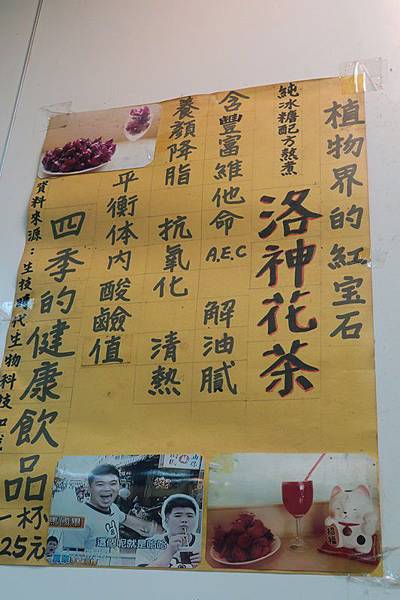 植物界的紅宝石
純冰糖配方熬煮
洛神花茶
含豐富維他命A.E.C 解油膩
養顏降脂 抗氧化 清熱
平衡体內酸鹼值
四季的健康飲品
一杯25元
資料來源:生技時代生物科技
這個呢就是洛
招福